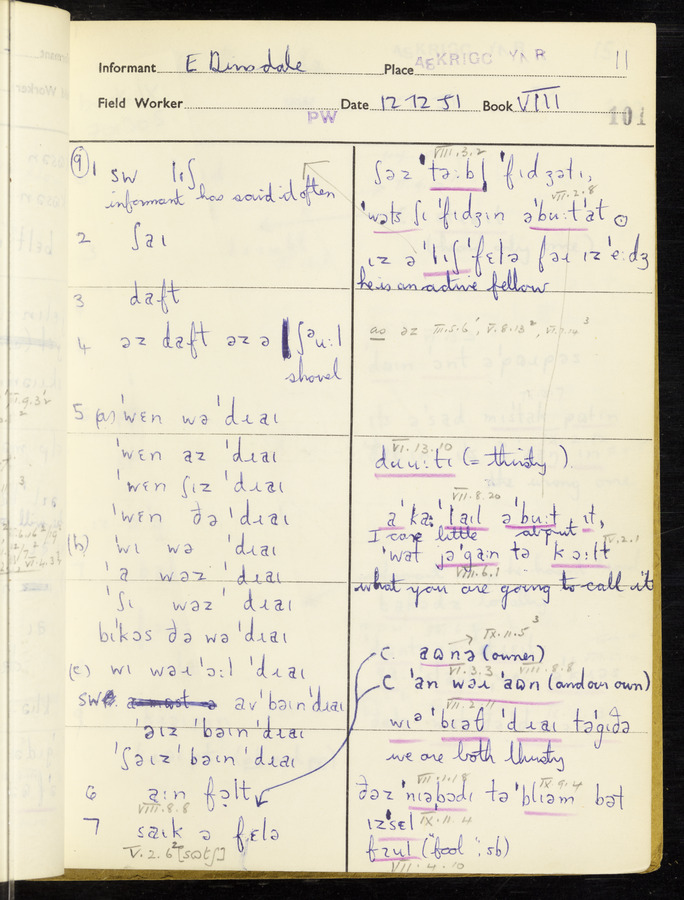 Informant E Dinsdale Place AEKRIGG YNR 11
Field Worker PW Date 12 12 51 Book VIII
101
⑨ 1 sw lɪʃ
informant has said it often
2 ʃaɪ
3 daft
4 əz daft əz ə ʃəuːl
shovel
5 (a) ˈwɛn wə ˈdɹaɪ
ˈwɛn az ˈdɹaɪ
ˈwɛn ʃɪz ˈdɹaɪ
ˈwɛn ðə ˈdɹaɪ
(b) ˈwɪ wə ˈdɹaɪ
ˈa wəz ˈdɹaɪ
ˈʃɪ wəz ˈdɹaɪ
bɪkɔs ðə wə ˈdɹaɪ
(c) wɪ wəɪ ˈɔːl ˈdɹaɪ
sw av ˈbəɪn ˈdɹaɪ
ˈəɪz ˈbəɪn ˈdɹaɪ
ˈʃəɪz ˈbəɪn ˈdɹaɪ
6 aːn fəlt
VIII.8.8
7 saɪk ə fɛlə
V.2.6
VIII.3.2
ʃəz ˈtəːbl ˈfɪdʒətɪ,
VII.2.8
ˈwəts ʃɪ ˈfɪdʒɪn əˈbuːt at
ɪz ə ˈlɪʃ ˈfɛlə fəɪ ɪz ˈeːdʒ
he is an active fellow
as əz III.5.6, V.8.13
VI.13.10
dɹuuːtɪ (= thirsty).
VII.8.20
a ˈkaː ˈlaɪl əˈbuːt ɪt,
I care little about it
IV.2.1
ˈwat jəˈgaɪn tə kɔːlt
VIII.6.1
what you are going to call it
IX.11.5 3
C. aʊnə (owner)
VI.3.3 VIII.8.8
C ˈan wəɪ ˈaʊn (and our own)
VII.2.11
wɪə ˈbɪəθ ˈdɹaɪ təˈgɪðə
we are both thirsty
VII.1.18 IX.9.4
ðəz ˈnɪəbədɪ tə ˈblɪəm bət
ɪzˈsɛl IX.11.4
fɪul ("fool": sb)
VII.4.10